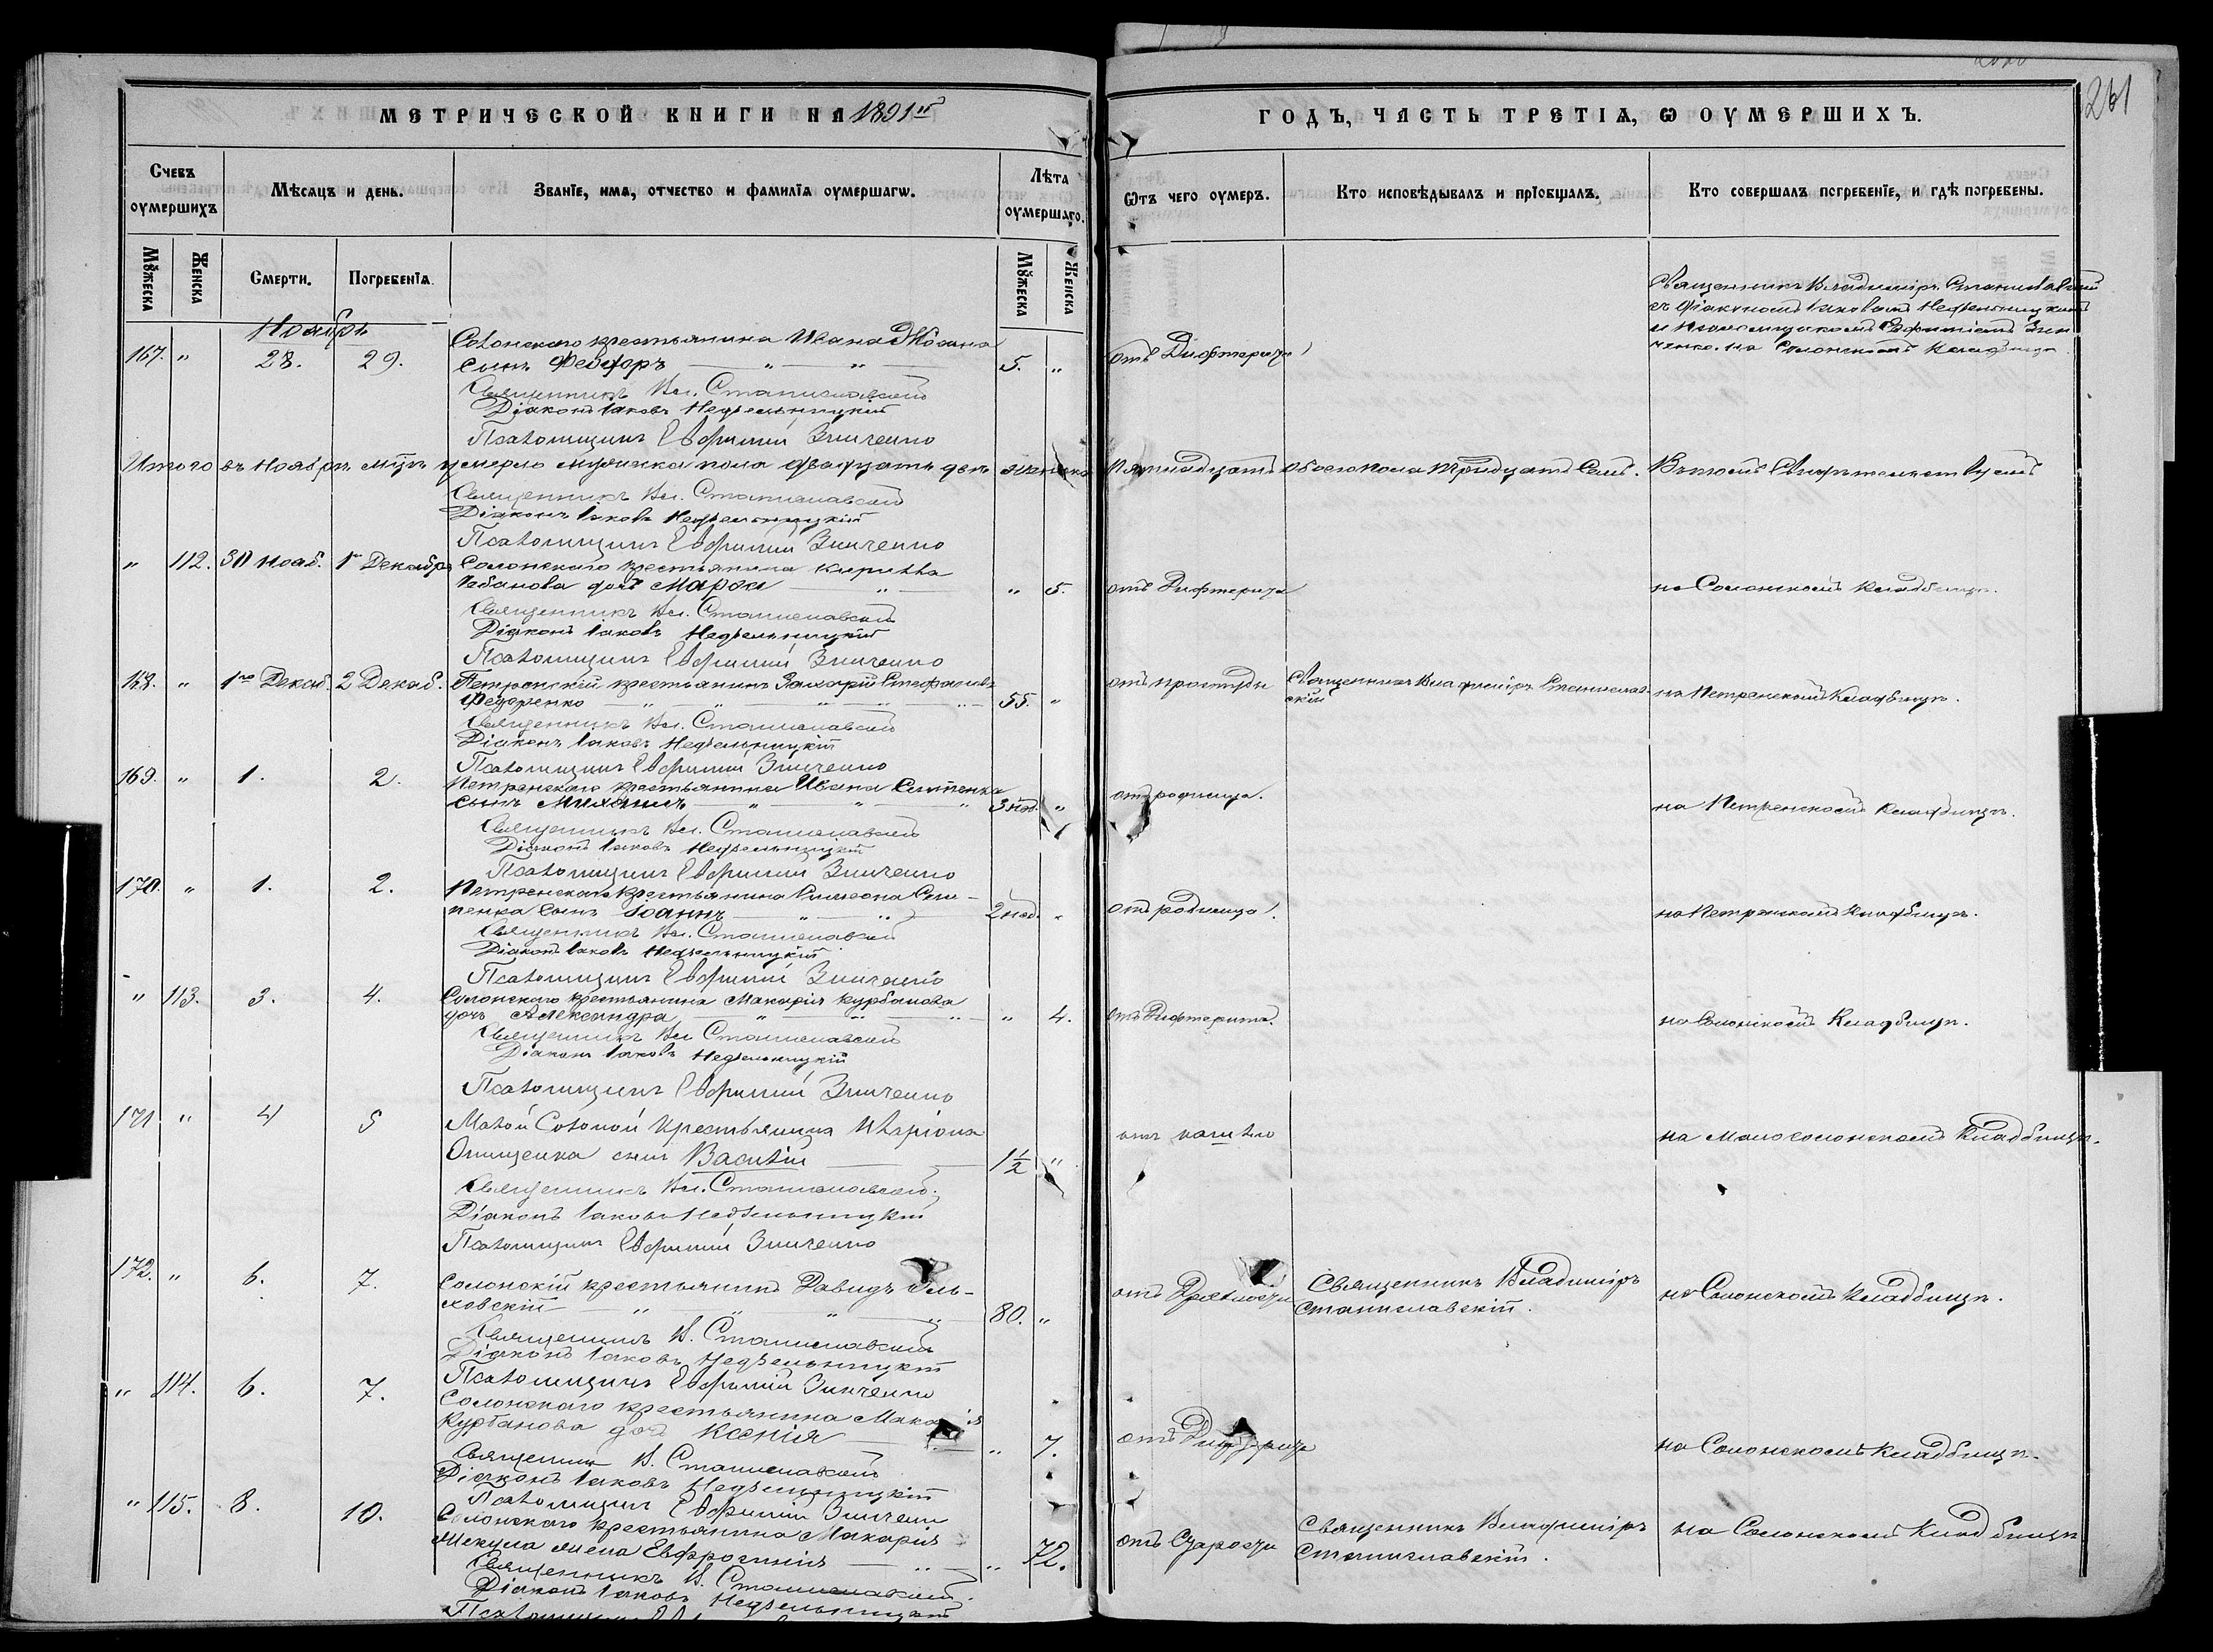 261
МЕТРИЧЕСКОЙ КНИГИ НА 1891й
ГОДЪ, ЧАСТЬ ТРЕТІЯ, Ѡ ОУМЕРШИХЪ.
Счевъ оумершихъ
Мѣсяцъ и день.
Званіе, имя, отчество и фамилія оумершагѡ.
Лѣта оумершаго.
Ѿтъ чего оумеръ.
Кто исповѣдывалъ и пріобщалъ.
Кто совершалъ погребеніе, и гдѣ погребены.
Мꙋжеска
Женска
Смерти.
Погребенія.
Мꙋжеска
Женска
Священникъ Владиміръ Станиславскій
съ Діакономъ Іаковомъ Недѣльницкимъ
и Псаломщикомъ Евфиміемъ Зин
ченко. на Солонскомъ Кладбищѣ
Ноябрь
Солонскаго крестьянина Ивана
167. " 28. 29. сынъ Феодоръ 5. " отъ Дифтерита
Священникъ Вл. Станиславскій
Діаконъ Іаковъ Недѣльницкій
Псаломщикъ Евфимій Зинченко
Итого въ Ноябрѣ м-цѣ умерло мужеска пола двадцать два женска Пятнадцать обоего пола тридцать семь. Въ томъ Свидѣтельствуемъ
Священникъ Вл. Станиславскій
Діаконъ Іаковъ Недѣльницкій
Псаломщикъ Евфимій Зинченко
" 112. 30 нояб. 1го Декабря Солонскаго крестьянина Кирилла
дочь Марфа " 5. отъ Дифтерита на Солонскомъ Кладбищѣ.
Священникъ Вл. Станиславскій
Діаконъ Іаковъ Недѣльницкій
Псаломщикъ Евфимій Зинченко
168. " 1го Декаб. 2 Декаб. Петренскій крестьянинъ Захарій Стефановъ
Федоренко 55. " отъ простуды Священникъ Владиміръ Станиславскій на Петренскомъ Кладбищѣ.
Священникъ Вл. Станиславскій
Діаконъ Іаковъ Недѣльницкій
Псаломщикъ Евфимій Зинченко
169. " 1. 2. Петренскаго крестьянина Ивана
сынъ Михаилъ 3 нед. " отъ родимца. на Петренскомъ Кладбищѣ.
Священникъ Вл. Станиславскій
Діаконъ Іаковъ Недѣльницкій
Псаломщикъ Евфимій Зинченко
170. " 1. 2. Петренскаго крестьянина Симеона
сынъ Іоаннъ 2 нед. " отъ родимца. на Петренскомъ Кладбищѣ.
Священникъ Вл. Станиславскій
Діаконъ Іаковъ Недѣльницкій
Псаломщикъ Евфимій Зинченко
" 113. 3. 4. Солонскаго крестьянина Макарія Курбанова
дочь Александра " 4. отъ Дифтерита. на Солонскомъ Кладбищѣ.
Священникъ Вл. Станиславскій
Діаконъ Іаковъ Недѣльницкій
Псаломщикъ Евфимій Зинченко
171 " 4 5 Малой Солоной крестьянина Иларіона
Онищенка сынъ Василій 1½ " отъ кашлю на малосолонскомъ Кладбищѣ.
Священникъ Вл. Станиславскій
Діаконъ Іаковъ Недѣльницкій
Псаломщикъ Евфимій Зинченко
172. " 6. 7. Солонскій крестьянинъ Давидъ Оль-
ховскій 80. " отъ Священникъ Владиміръ Станиславскій. на Солонскомъ Кладбищѣ.
Священникъ В. Станиславскій
Діаконъ Іаковъ Недѣльницкій
Псаломщикъ Евфимій Зинченко
" 114. 6. 7. Солонскаго крестьянина Макарія
Курбанова дочь Ксенія " 7. отъ Дифтерита на Солонскомъ Кладбищѣ.
Священникъ В. Станиславскій
Діаконъ Іаковъ Недѣльницкій
Псаломщикъ Евфимій Зинченко
" 115. 8. 10. Солонскаго крестьянина Макарія
жена Евфросинія " 72. отъ Старости Священникъ Владиміръ Станиславскій. на Солонскомъ Кладбищѣ
Священникъ В. Станиславскій
Діаконъ Іаковъ Недѣльницкій